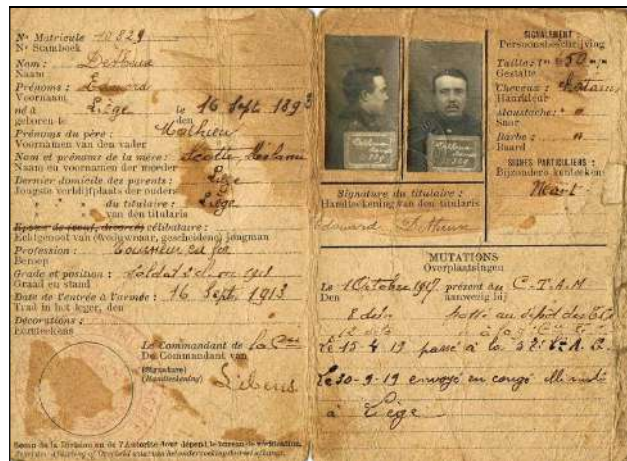 Nº Matricule 10829
Nr Stamboek
Nom : Dethune
Naam
Prénoms : Edouard
Voornaam
né à Liège le 16 Sept 1893
geboren te den
Prénoms du père : Mathieu
Voornamen van den vader
Nom et prénoms de la mère :
Naam en voornamen der moeder
Dernier domicile des parents : Liège
Jongste verblijfplaats der ouders
" " du titulaire : Liège
" " van den titularis
Epoux de (veuf, divorcé) célibataire :
Echtgenoot van (weduwnaar, gescheiden) jongman
Profession : Tourneur en fer
Beroep
Grade et position : Soldat
Graad en stand
Date de l'entrée à l'armée : 16 Sept. 1913
Trad in het leger, den
Décorations :
Eereteekens
Le Commandant de la Cie
De Commandant van
(Signature)
(Handteekening)
Sceau de la Division ou de l'Autorité dont dépend le bureau de vérification.
SIGNALEMENT :
Persoonsbeschrijving
Taille : 1m 650 m/m
Gestalte
Cheveux : Chatains
Haarkleur
Moustache :
Snor
Barbe : "
Baard
SIGNES PARTICULIERS :
Bijzondere kenteeken
Néant
Signature du titulaire :
Handteekening van den titularis
Edouard Dethune
MUTATIONS
Overplaatsingen
Le 1 Octobre 1917 présent au C.T.A.M.
Den aanwezig bij
8 passé au dépôt des
Le 15-4-19 passé à la
Le 30-9-19 envoyé en congé illimité
à Liège